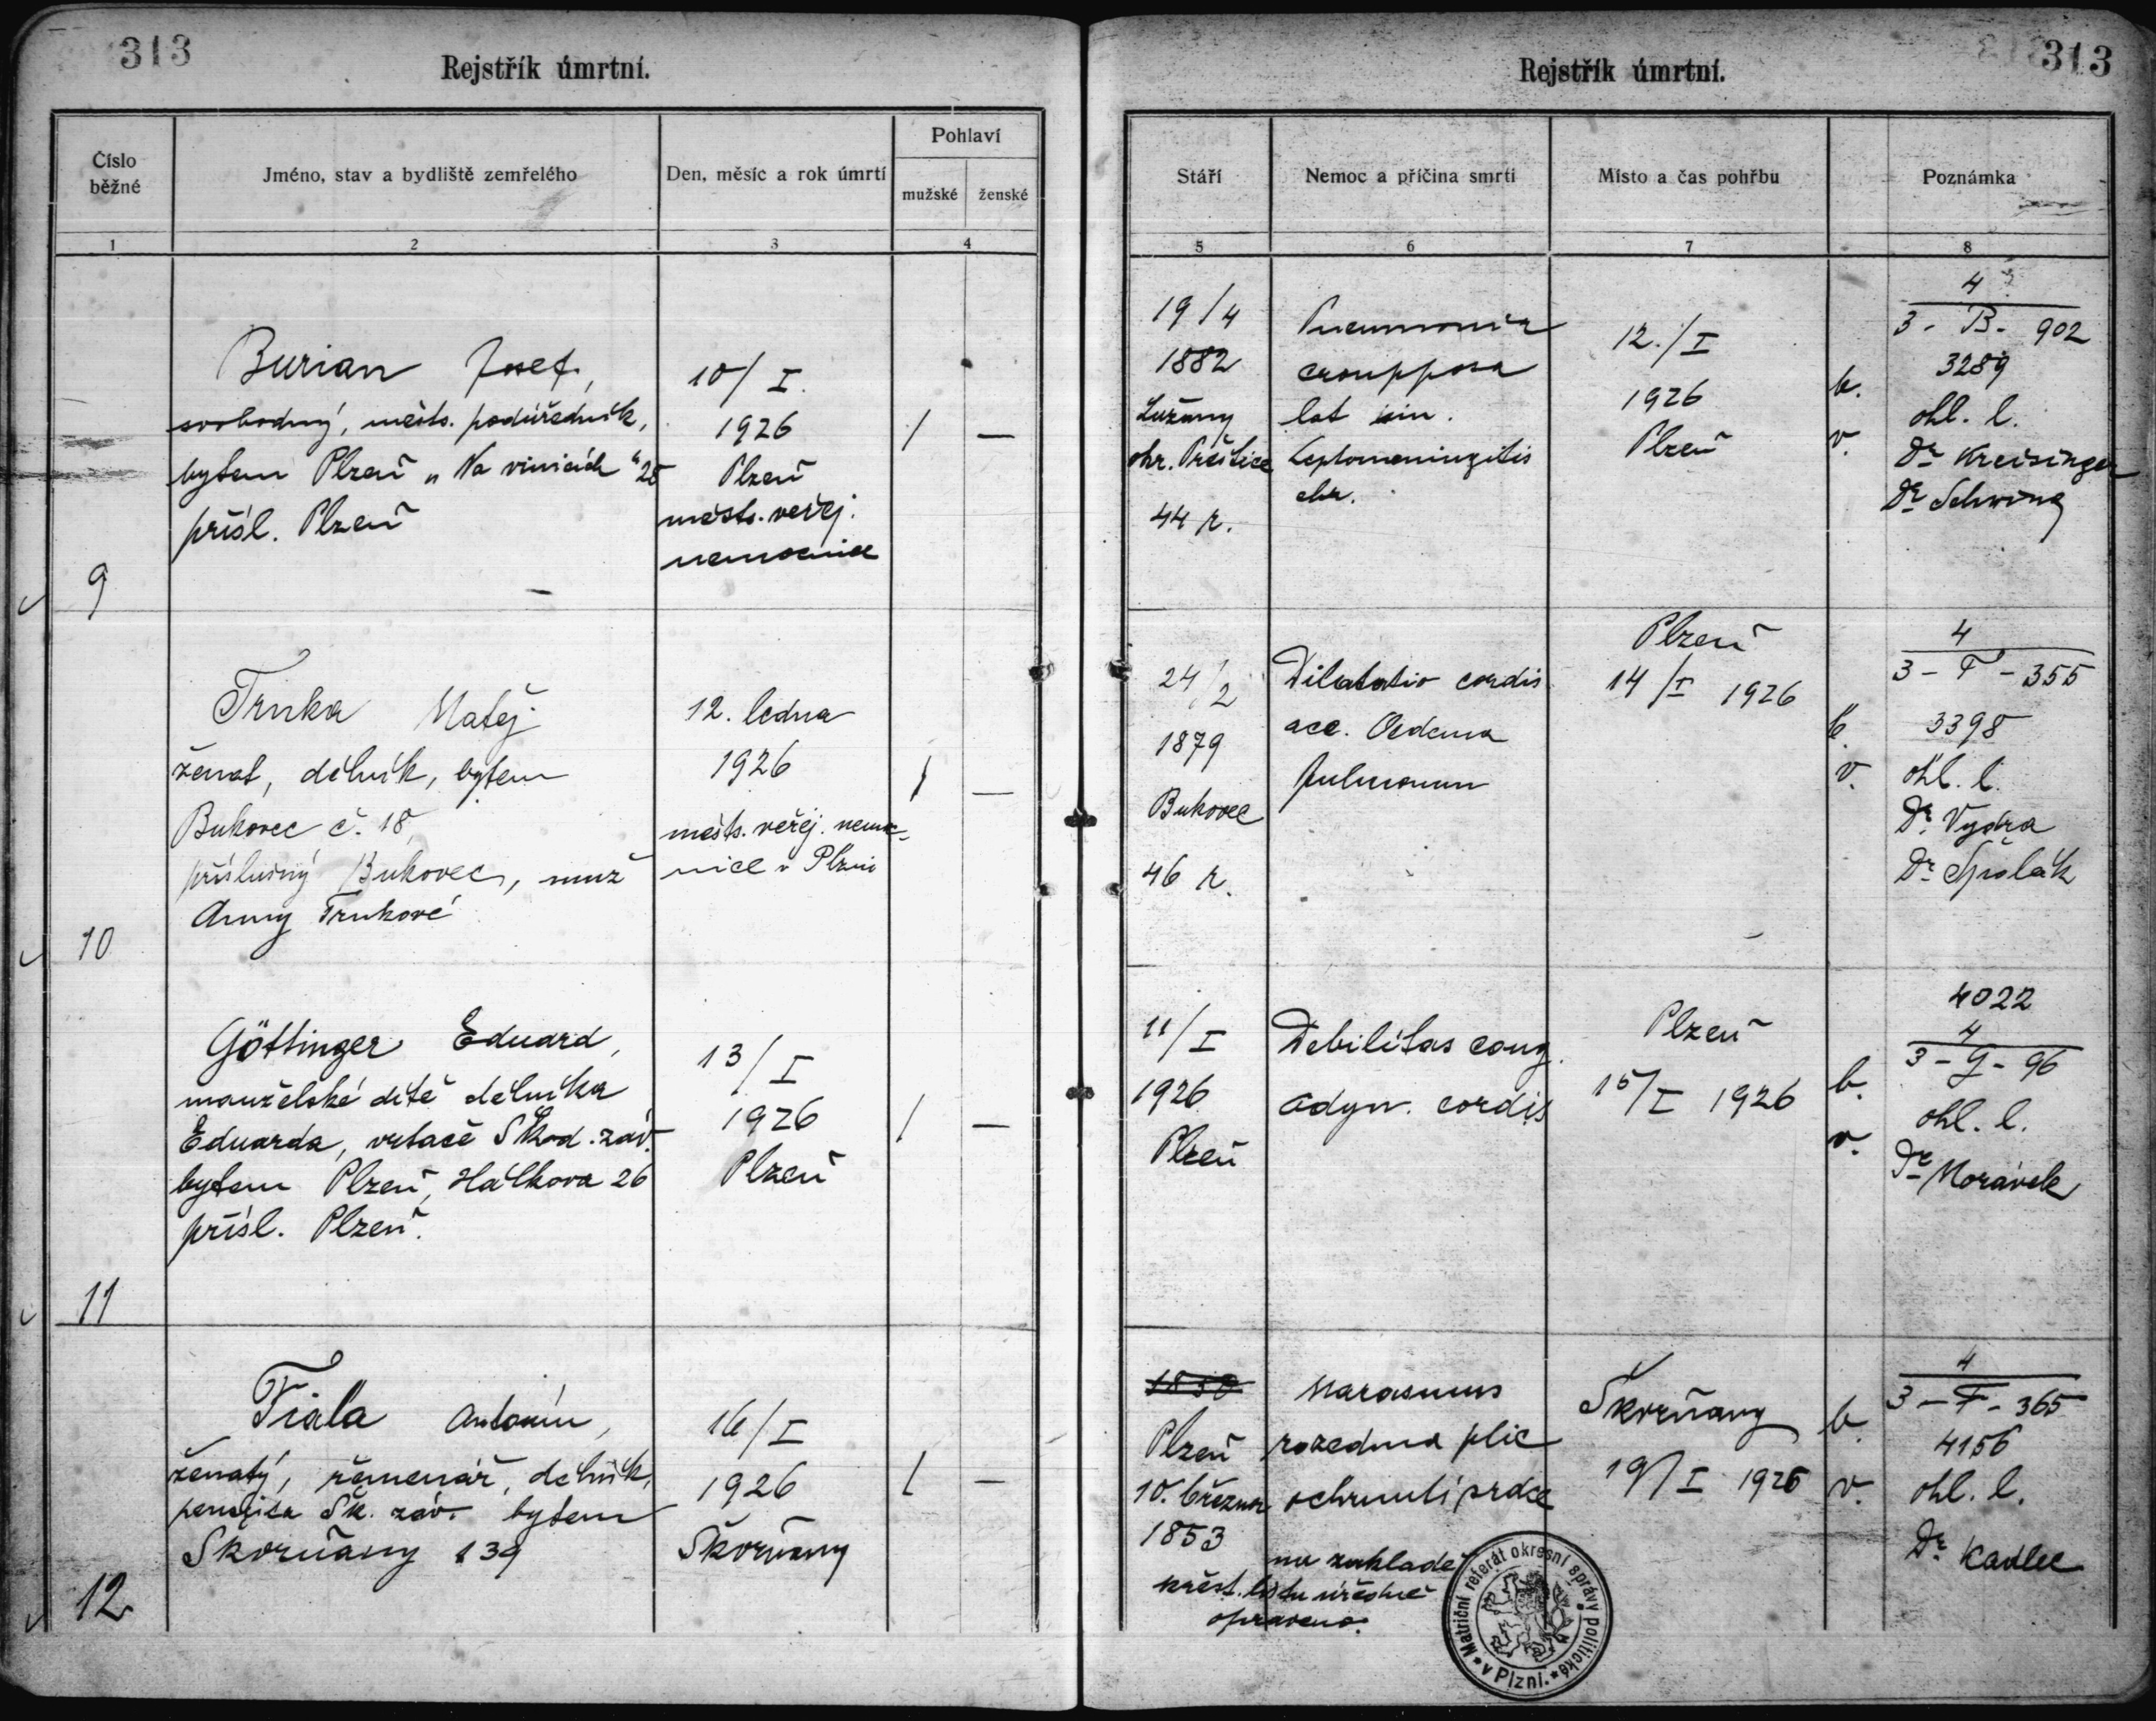 313
Rejstřík úmrtní.
Číslo běžné
Jméno, stav a bydliště zemřelého
Den, měsíc a rok úmrtí
Pohlaví
mužské
ženské
1
2
3
4
Burian Josef,
svobodný, měšts. podúředník,
bytem Plzeň „Na vinicích" 25
přísl. Plzeň
10/I.
1926
Plzeň
měšts. veřej.
nemocnice
/
—
9
Trnka Matěj
ženat, dělník, bytem
Bukovec č. 18,
příslušný Bukovec, muž
Anny Trnkové
12. ledna
1926
měšts. veřej. nemoc-
nice v Plzni
/
—
10
Göttinger Eduard,
manželské dítě dělníka
Eduarda, vrtače Škod. záv.
bytem Plzeň, Hálkova 26
přísl. Plzeň.
13/I
1926
Plzeň
/
—
11
Fiala Antonín,
ženatý, řemenář, dělník,
pensista Šk. záv. bytem
Skvrňany 139
16/I
1926
Skvrňany
/
—
12
313
Rejstřík úmrtní.
Stáří
Nemoc a příčina smrti
Místo a čas pohřbu
Poznámka
5
6
7
8
19/4
1882
Lužany
okr. Přeštice
44 r.
Pneumonia
croupposa
lat sin.
Leptomeningitis
chr.
12./I
1926
Plzeň
k.
v.
4
3 - B - 902
3289
ohl. l.
Dr Kreisinger
Dr Schwing
24/2
1879
Bukovec
46 r.
Dilatatio cordis
acc. Oedema
pulmonum
Plzeň
14/I 1926
k.
v.
4
3 - T - 355
3398
ohl. l.
Dr. Vydra
Dr Špolák
11/I
1926
Plzeň
Debilitas cong.
adyn. cordis
Plzeň
15/I 1926
k.
v.
4022
4
3 - G - 96
ohl. l.
Dr Morávek
1850
Plzeň
10. března
1853
Marasmus
rozedma plic
ochrnutí srdce
na základě
křest. listu úředně
opraveno.
Škvrňany
19/I 1926
k.
v.
4
3 - F - 365
4156
ohl. l.
Dr Kadlec
Matriční referát okresní správy politické v Plzni.